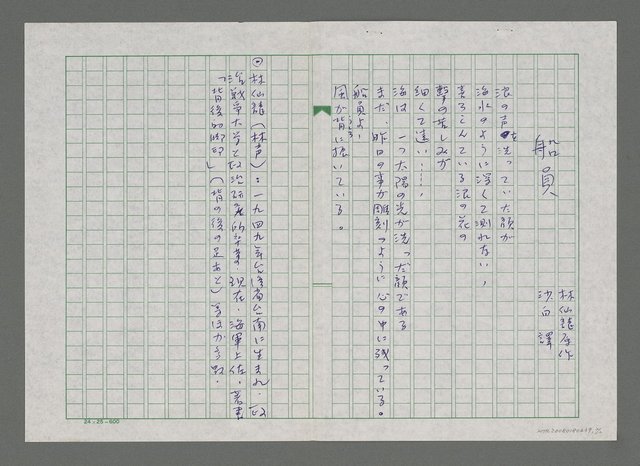 船員
林仙龍原作
沙白譯
浪の声を洗っていた顔が
海水のように深くて測れない、
浪の花の
撃の苦しみが
細くて遠い……
海は 一つ太陽の光が洗った顔である
まだ、昨日の事が雕刻のように心の中に残っている。
船員よ、
風が背に揺いている。
◎林仙龍(林声):一九四九年台湾省台南に生まれ、政
治戦争大学政治 卒業、現在、海軍上佐、著書
「背後的腳印」(背の後の足あと)等ほか多数。
24×25=600